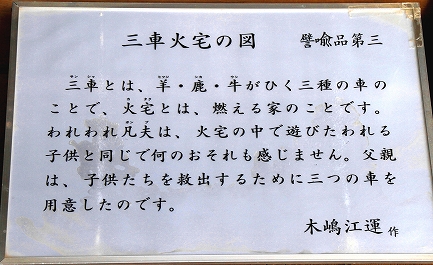 三車火宅の図　譬喩品第三
三車とは、羊・鹿・牛がひく三種の車の
ことで、火宅とは、燃える家のことです。
われわれ凡夫は、火宅の中で遊びたわれる
子供と同じで何のおそれも感じません。父親
は、子供たちを救出するために三つの車を
用意したのです。
木嶋江運 作